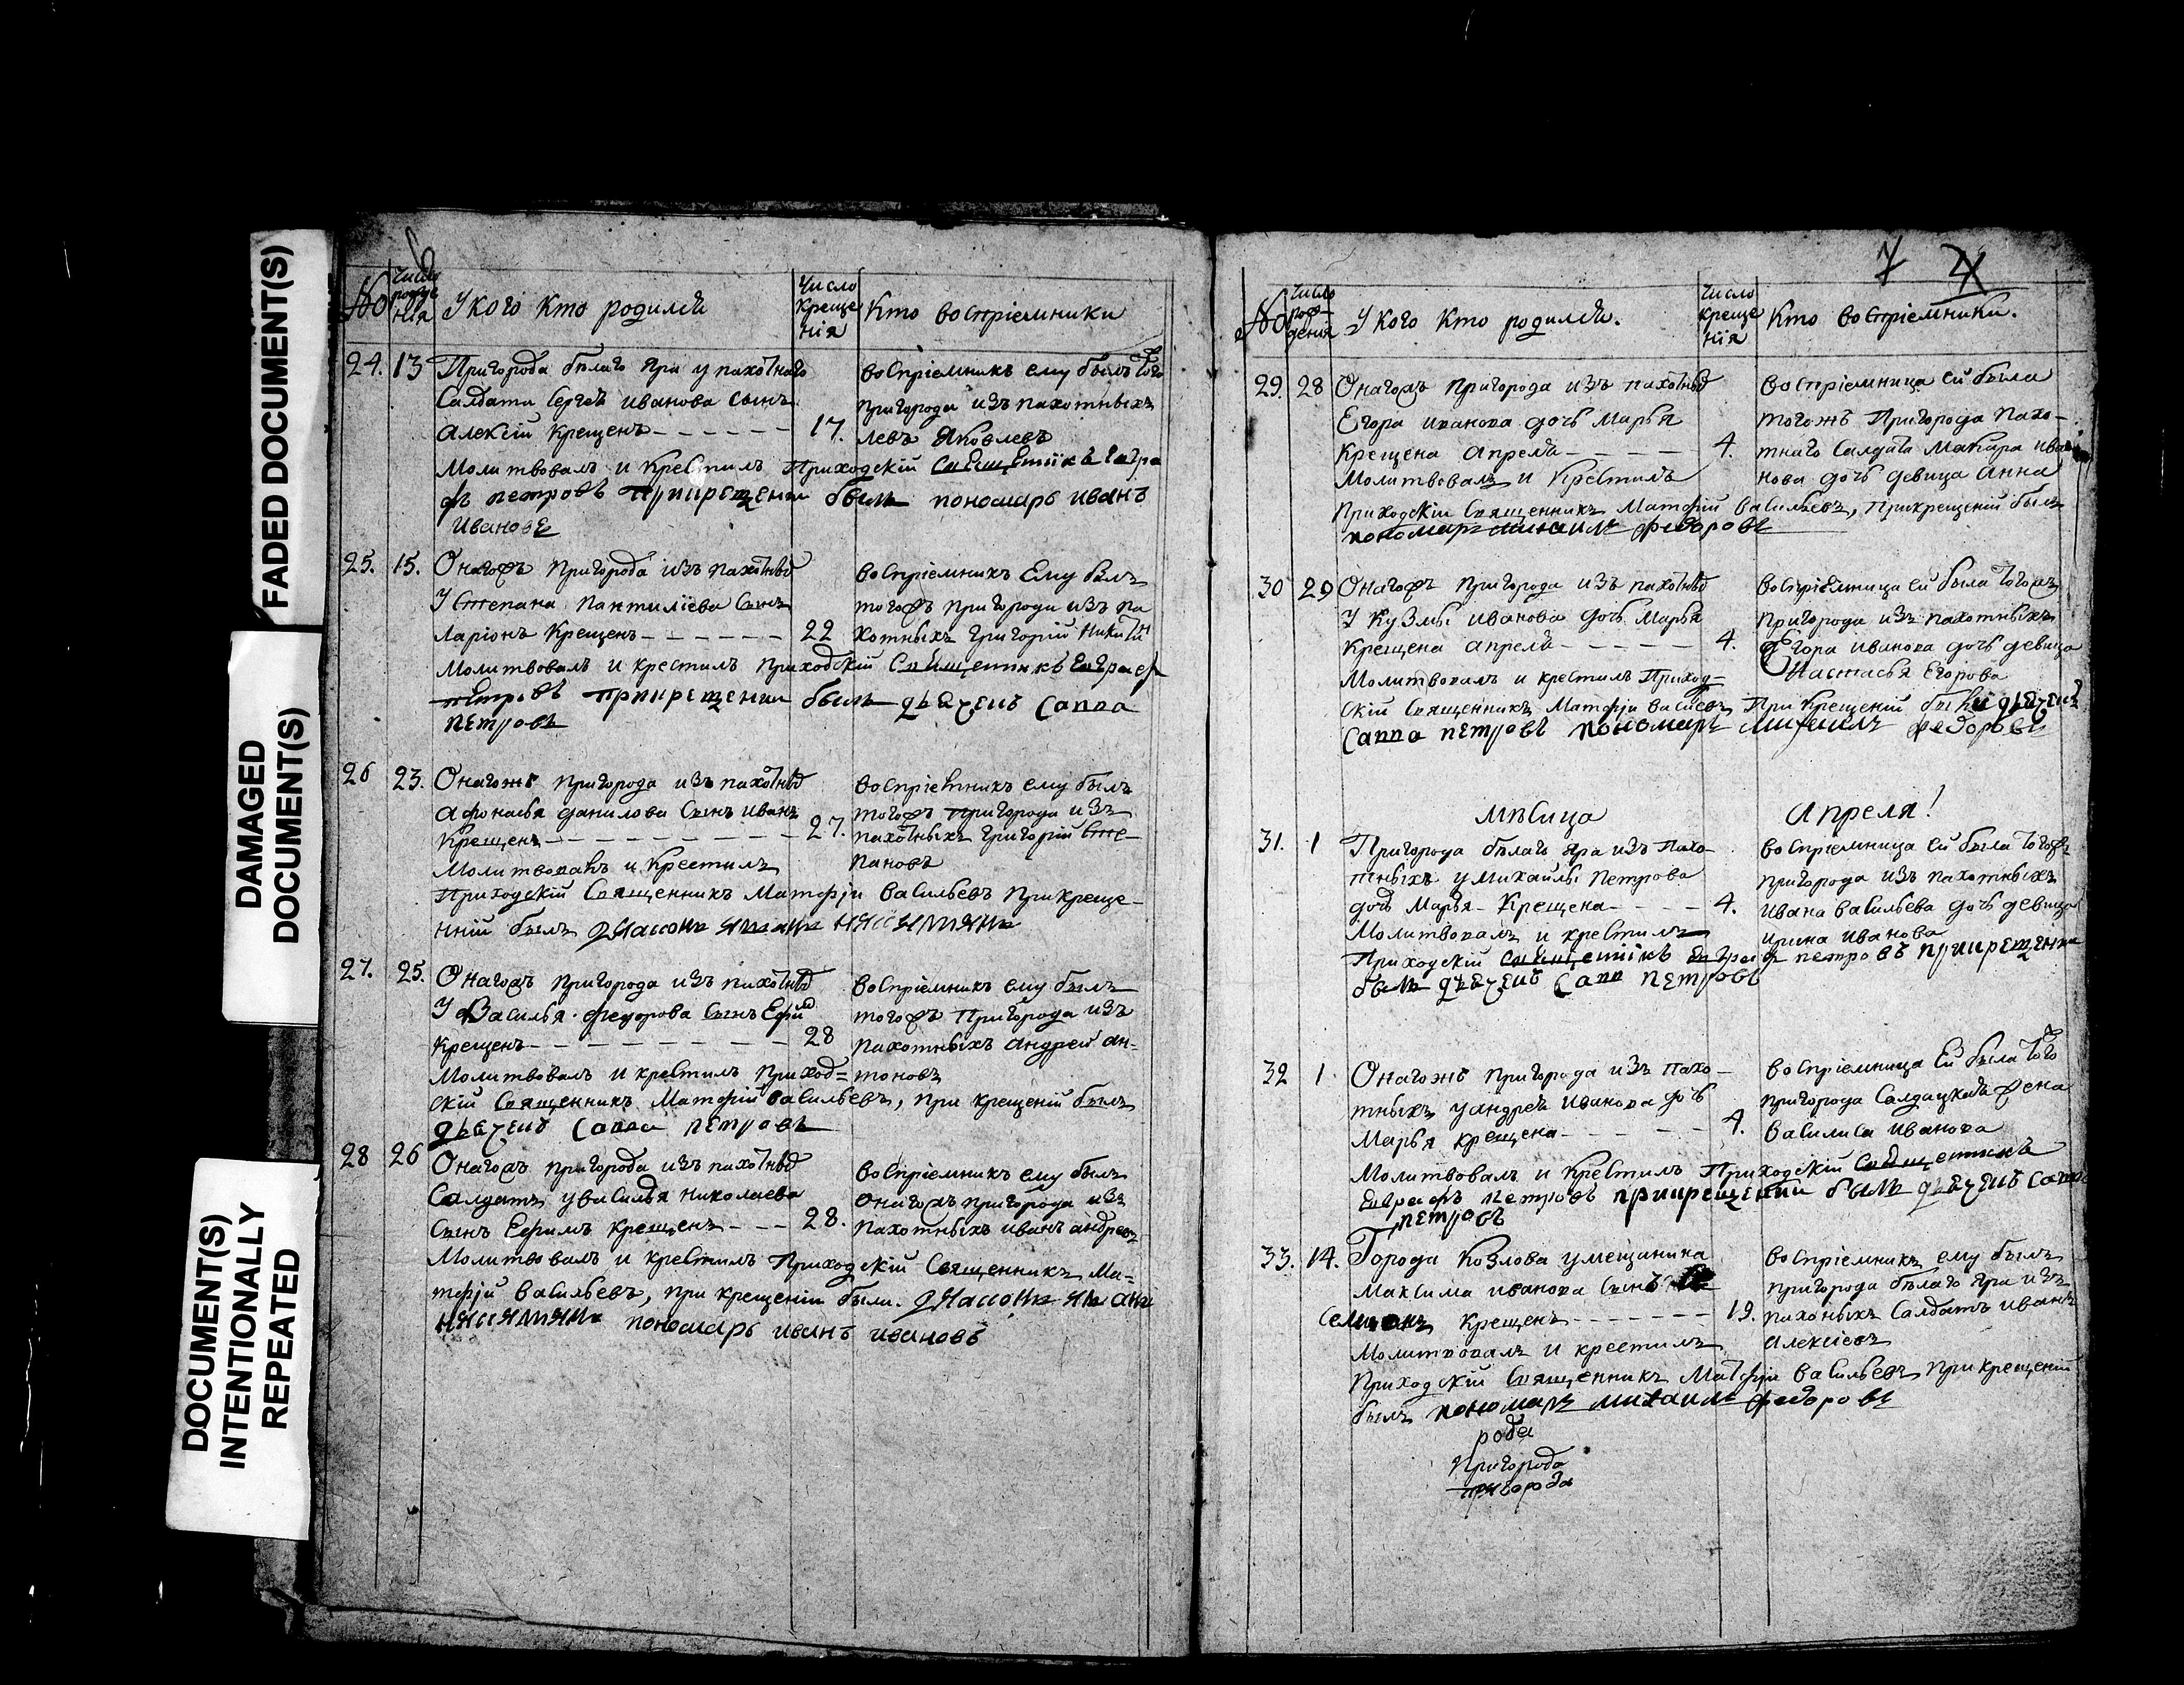 FADED DOCUMENT(S)
DAMAGED
DOCUMENT(S)
DOCUMENT(S)
INTENTIONALLY
REPEATED
6
№
число рожде нія
У кого кто родился
Число Креще нія
Кто воспріемники
24. 13 Пригорода бѣлаго Яра у пахотнаго
Салдата Сергея иванова сынъ
Алексѣй Крещенъ 17.
воспріемникъ ему былъ того
пригорода изъ пахотныхъ
левъ Яковлевъ
Молитвовалъ и Крестилъ Приходскій Священникъ Евгра
фъ петровъ При крещении былъ пономарь иванъ
Ивановъ
25. 15. Онагожъ пригорода изъ пахотныхъ
У Степана Пантилѣева Сынъ
Ларіонъ Крещенъ 22
воспріемникъ Ему былъ
тогожъ пригорода изъ па
хотныхъ Григорій Никитинъ
Молитвовалъ и крестилъ приходскій Священникъ Евграф
петровъ при крещении былъ дьячекъ Савва
петровъ
26 23. Онагожъ пригорода изъ пахотныхъ
Афонасья данилова Сынъ Иванъ
Крещенъ 27.
воспріемникъ ему былъ
тогожъ Пригорода изъ
пахотныхъ Григорій Сте-
пановъ
Молитвовалъ и Крестилъ
Приходскій Священникъ Матфѣй васильевъ При креще-
нній былъ
27. 25. Онагожъ Пригорода изъ пахотныхъ
У Василья федорова Сынъ Ефимъ
Крещенъ 28
воспріемникъ ему былъ
тогожъ Пригорода изъ
пахотныхъ Андрей ан-
тоновъ
Молитвовалъ и крестилъ приход=
скій Священникъ Матфѣй васильевъ, при крещеній былъ
дьячекъ Савва петровъ
28 26 Онагожъ пригорода изъ пахотныхъ
Салдатъ у василья николаева
Сынъ Ефимъ крещенъ 28.
воспріемникъ ему былъ
онагожъ пригорода изъ
пахотныхъ иванъ андреевъ
Молитвовалъ и крестилъ Приходскій Священникъ Ма=
тфѣй васильевъ, при крещеніи были.
пономарь иванъ ивановъ
7
№
число рож-дения
У кого Кто родился.
число креще нія
Кто воспріемники.
29. 28 Онагожъ пригорода изъ пахотныхъ
Егора иванова дочь Марья
Крещена апреля 4.
воспріемница ей была
тогожъ Пригорода пахо-
тнаго Салдата Макара ива
нова дочь девица Анна
Молитвовалъ и Крестилъ
Приходскій Священникъ Матфѣй васильевъ, при крещеній былъ
пономарь михаилъ федоровъ
30 29 Онагожъ пригорода изъ пахотныхъ
У Кузмы иванова дочь Марья
Крещена апреля 4.
воспріемница ей была тогожъ
пригорода изъ пахотныхъ
Егора иванова дочь девица
Настасья Егорова
Молитвовалъ и крестилъ Приход-
скій Священникъ Матфѣй васильевъ При Крещеній были дьячекъ
Савва петровъ пономарь михаилъ федоровъ
Мѣсяца Апреля!
31. 1 Пригорода бѣлаго Яра изъ Пахо-
тныхъ у Михайлы Петрова
дочь Марья Крещена 4.
воспріемница ей была тогожъ
пригорода изъ пахотныхъ
ивана васильева дочь девица
ирина иванова
Молитвовалъ и крестилъ
Приходскій священникъ Евграф петровъ при крещении
былъ дьячекъ Савва петровъ
32 1. Онагожъ пригорода изъ пахо-
тныхъ у андрея иванова дочь
Марья крещена 4.
воспріемница Ей была того
пригорода Салдацкая жена
василиса иванова
Молитвовалъ и крестилъ Приходскій Священникъ
Евграфъ петровъ при крещении былъ дьячекъ Савва
петровъ
33. 14. Города Козлова у мещанина
Максима иванова Сынъ
крещенъ 19.
воспріемникъ ему былъ
пригорода бѣлаго Яра изъ
пахоныхъ Салдатъ иванъ
Алексіевъ
Молитвовалъ и крестилъ
Приходскій Священникъ Матфѣй васильевъ При крещеній
былъ пономарь михаилъ федоровъ
рода
Пригорода
пригорода